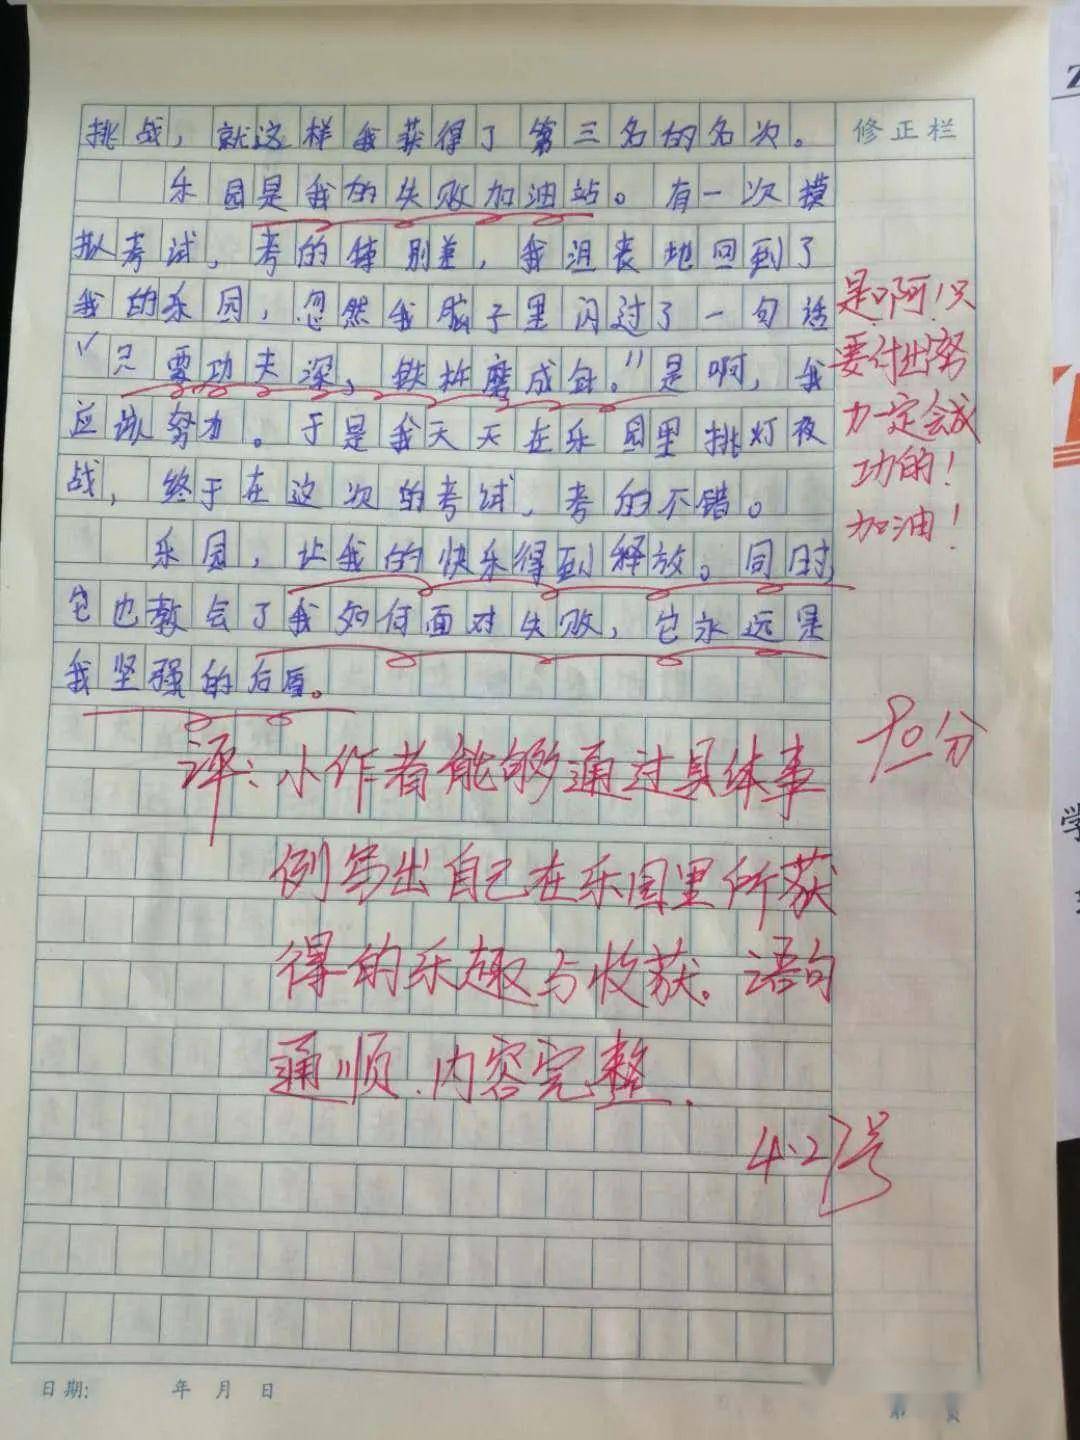 挑战，就这样我获得了第三名的名次。
修正栏
乐园是我的失败加油站。有一次摸
拟考试，考的特别差，我沮丧地回到了
我的乐园，忽然我脑子里闪过了一句话
“只要功夫深，铁杵磨成针。”是啊，我
应该努力。于是我天天在乐园里挑灯夜
战，终于在这次的考试，考的不错。
乐园，让我的快乐得到释放。同时，
它也教会了我如何面对失败，它永远是
我坚强的后盾。
是啊！只
要付出努
力一定会成
功的！
加油！
90分
评：小作者能够通过具体事
例写出自己在乐园里所获
得的乐趣与收获。语句
通顺.内容完整.
4.27号
日期： 年 月 日
第 页
学